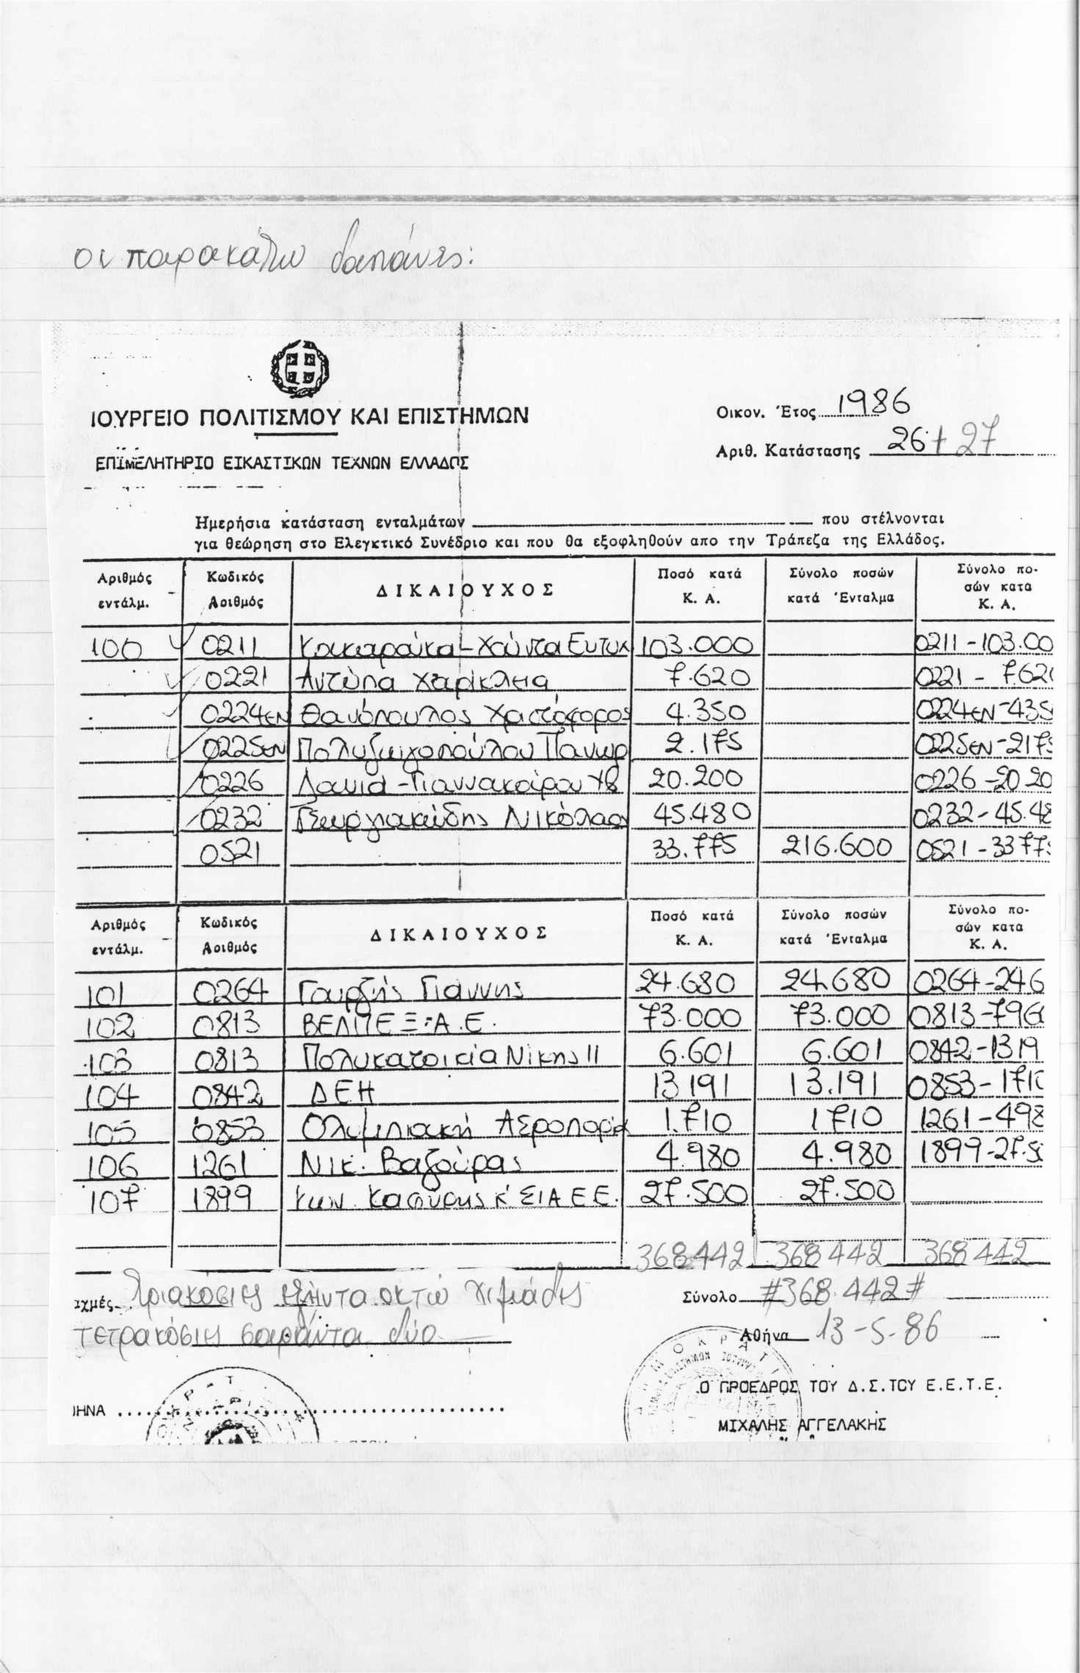 οι παρακάτω δαπάνες:
ΙΟΥΡΓΕΙΟ ΠΟΛΙΤΙΣΜΟΥ ΚΑΙ ΕΠΙΣΤΗΜΩΝ
ΕΠΙΜΕΛΗΤΗΡΙΟ ΕΙΚΑΣΤΙΚΩΝ ΤΕΧΝΩΝ ΕΛΛΑΔΟΣ
Οικον. Έτος 1986
Αριθ. Κατάστασης 26+27
Ημερήσια κατάσταση ενταλμάτων που στέλνονται
για θεώρηση στο Ελεγκτικό Συνέδριο και που θα εξοφληθούν απο την Τράπεζα της Ελλάδος.
Αριθμός εντάλμ. Κωδικός Αριθμός ΔΙΚΑΙΟΥΧΟΣ Ποσό κατά Κ. Α. Σύνολο ποσών κατά Ένταλμα Σύνολο ποσών κατα Κ. Α.
100 0211 Χούντα Ευτυχ 103.000 0211-103.00
0221 Αντύπα Χαρίκλεια 7.620 0221 - 7.62
0224ΕΝ Θανόπουλος Χριστόφορος 4.350 0224ΕΝ-435
0225ΕΝ Πολυζωγοπούλου Πανωρ 2.175 0225ΕΝ-217
0226 Δανιά-Γιαννακοίρου 20.200 0226-20 20
0232 Γεωργιακώδης Νικόλαος 45.480 0232-45.48
0521 33.775 216.600 0521-33 77
Αριθμός εντάλμ. Κωδικός Αριθμός ΔΙΚΑΙΟΥΧΟΣ Ποσό κατά Κ. Α. Σύνολο ποσών κατά Ένταλμα Σύνολο ποσών κατα Κ. Α.
101 0264 Γουρζής Γιάννης 24.680 24.680 0264-246
102 0813 ΒΕΛΠΕΞ Α.Ε. 73.000 73.000 0813-796
103 0813 Πολυκατοικία Νίκης 11 6.601 6.601 0842-1319
104 0842 ΔΕΗ 13 191 13.191 0853-171
105 0853 Ολυμπιακή Αεροπορία 1.710 1 710 1261-498
106 1261 Νικ. Βαζούρας 4.980 4.980 1899-27.5
107 1899 Κων. Καψύρης κ ΣΙΑ Ε.Ε. 27.500 27.500
368.442 368 442 368 442
χμές Τριακόσιες εξήντα οκτώ χιλιάδες
τετρακόσιες σαράντα δύο
Σύνολο #368.442#
Αθήνα 13-5-86
Ο ΠΡΟΕΔΡΟΣ ΤΟΥ Δ.Σ.ΤΟΥ Ε.Ε.Τ.Ε.
ΗΝΑ
ΜΙΧΑΛΗΣ ΑΓΓΕΛΑΚΗΣ